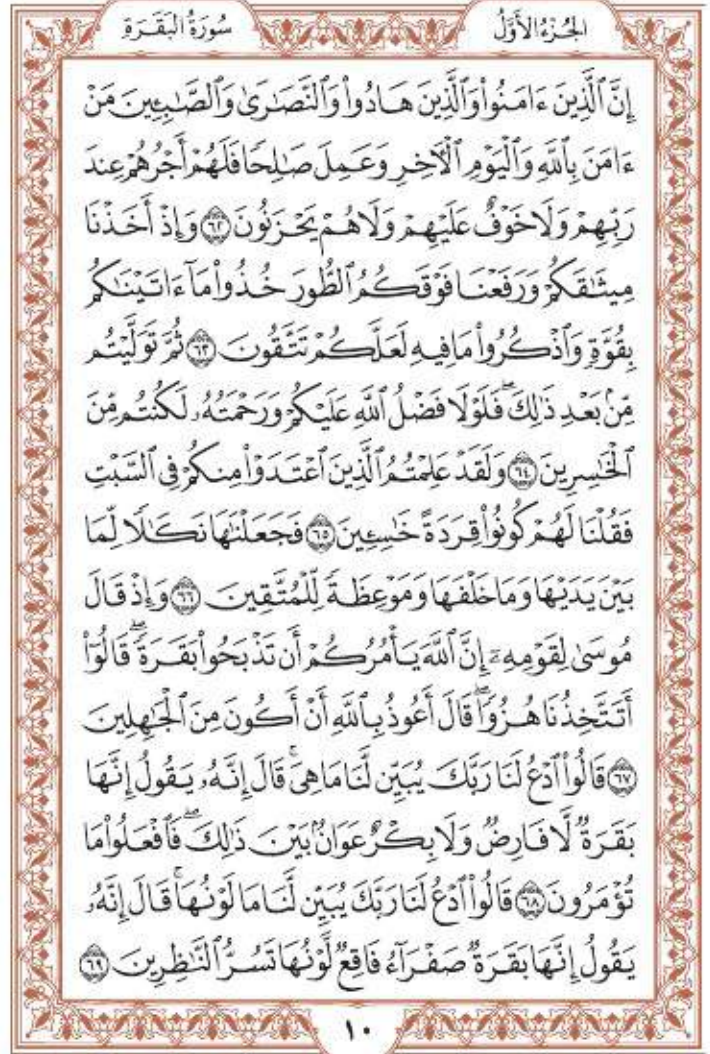 الجُزْءُ الأَوَّلُ
سُورَةُ البَقَرَةِ
إِنَّ ٱلَّذِينَ ءَامَنُواْ وَٱلَّذِينَ هَادُواْ وَٱلنَّصَٰرَىٰ وَٱلصَّٰبِـِٔينَ مَنْ
ءَامَنَ بِٱللَّهِ وَٱلْيَوْمِ ٱلْأَخِرِ وَعَمِلَ صَٰلِحًا فَلَهُمْ أَجْرُهُمْ عِندَ
رَبِّهِمْ وَلَا خَوْفٌ عَلَيْهِمْ وَلَا هُمْ يَحْزَنُونَ ۝٦٢ وَإِذْ أَخَذْنَا
مِيثَٰقَكُمْ وَرَفَعْنَا فَوْقَكُمُ ٱلطُّورَ خُذُواْ مَآ ءَاتَيْنَٰكُم
بِقُوَّةٍ وَٱذْكُرُواْ مَا فِيهِ لَعَلَّكُمْ تَتَّقُونَ ۝٦٣ ثُمَّ تَوَلَّيْتُم
مِّنۢ بَعْدِ ذَٰلِكَ ۖ فَلَوْلَا فَضْلُ ٱللَّهِ عَلَيْكُمْ وَرَحْمَتُهُۥ لَكُنتُم مِّنَ
ٱلْخَٰسِرِينَ ۝٦٤ وَلَقَدْ عَلِمْتُمُ ٱلَّذِينَ ٱعْتَدَوْاْ مِنكُمْ فِى ٱلسَّبْتِ
فَقُلْنَا لَهُمْ كُونُواْ قِرَدَةً خَٰسِـِٔينَ ۝٦٥ فَجَعَلْنَٰهَا نَكَٰلًا لِّمَا
بَيْنَ يَدَيْهَا وَمَا خَلْفَهَا وَمَوْعِظَةً لِّلْمُتَّقِينَ ۝٦٦ وَإِذْ قَالَ
مُوسَىٰ لِقَوْمِهِۦٓ إِنَّ ٱللَّهَ يَأْمُرُكُمْ أَن تَذْبَحُواْ بَقَرَةً ۖ قَالُوٓاْ
أَتَتَّخِذُنَا هُزُوًا ۖ قَالَ أَعُوذُ بِٱللَّهِ أَنْ أَكُونَ مِنَ ٱلْجَٰهِلِينَ
۝٦٧ قَالُواْ ٱدْعُ لَنَا رَبَّكَ يُبَيِّن لَّنَا مَا هِىَ ۚ قَالَ إِنَّهُۥ يَقُولُ إِنَّهَا
بَقَرَةٌ لَّا فَارِضٌ وَلَا بِكْرٌ عَوَانٌۢ بَيْنَ ذَٰلِكَ ۖ فَٱفْعَلُواْ مَا
تُؤْمَرُونَ ۝٦٨ قَالُواْ ٱدْعُ لَنَا رَبَّكَ يُبَيِّن لَّنَا مَا لَوْنُهَا ۚ قَالَ إِنَّهُۥ
يَقُولُ إِنَّهَا بَقَرَةٌ صَفْرَآءُ فَاقِعٌ لَّوْنُهَا تَسُرُّ ٱلنَّٰظِرِينَ ۝٦٩
١٠